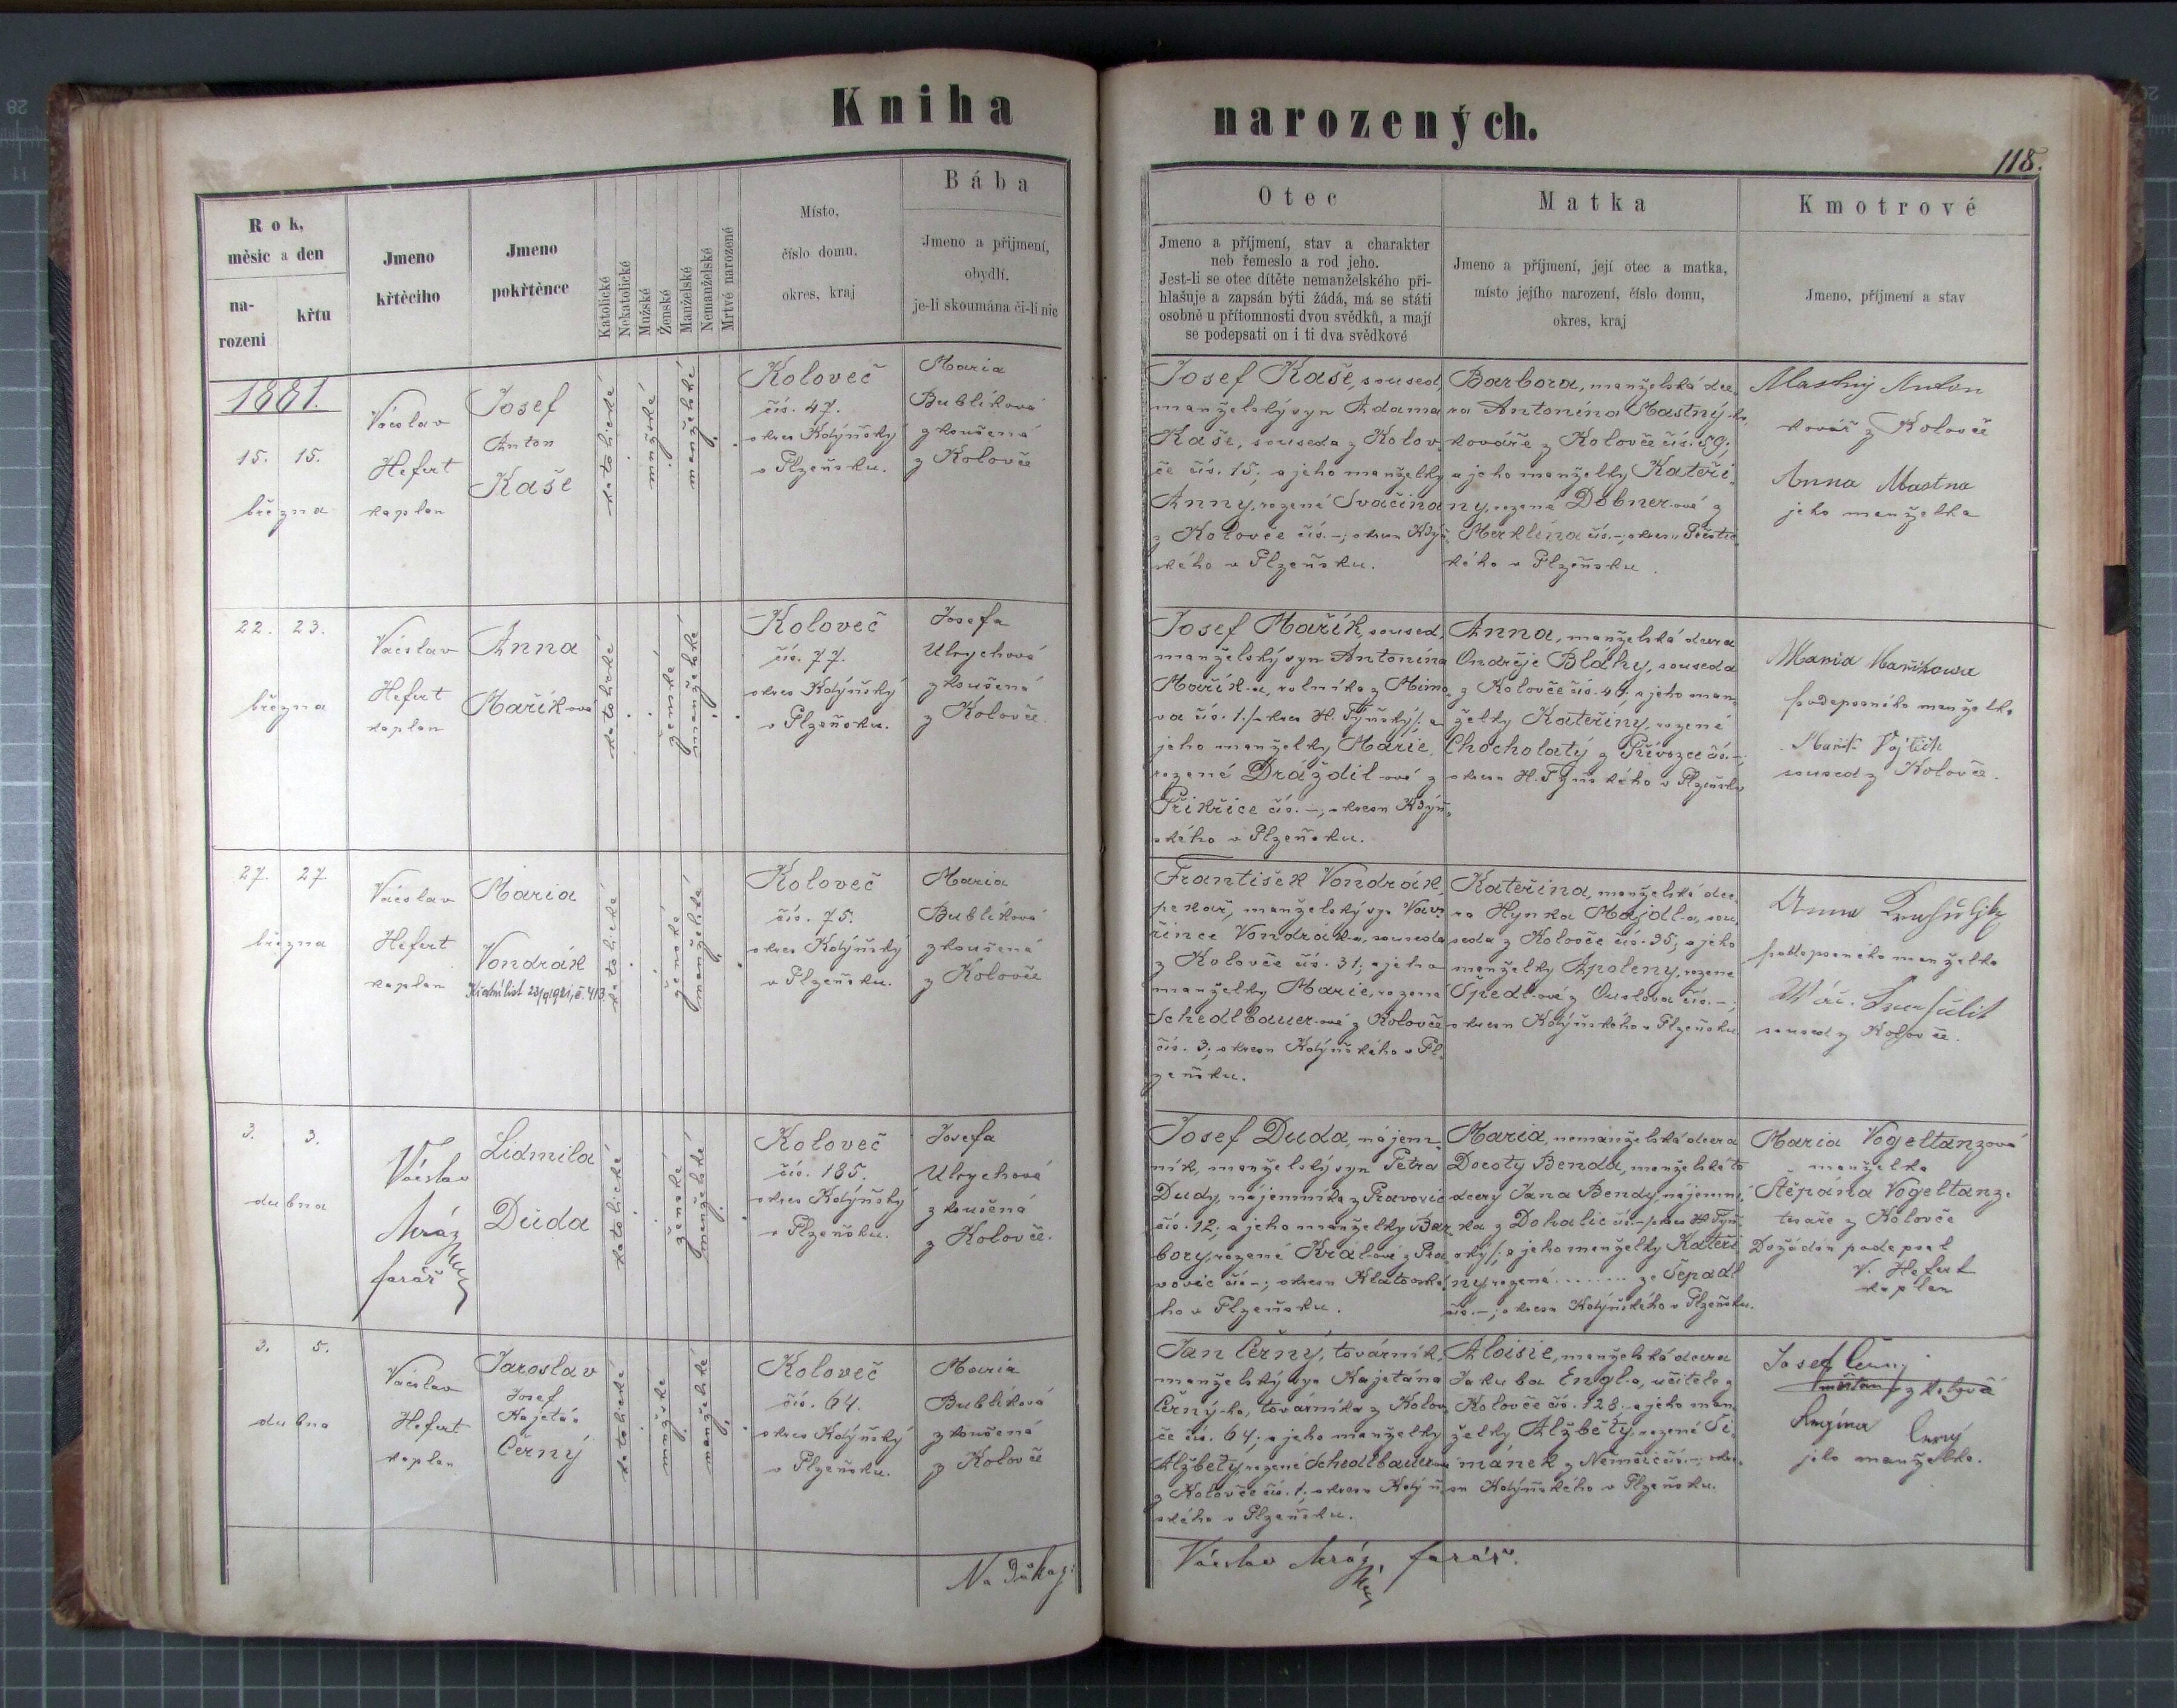 Kniha narozených.
118.
Rok,
měsíc a den
na-
rození
křtu
Jmeno
křtěcího
Jmeno
pokřtěnce
Katolické
Nekatolické
Mužské
Ženské
Manželské
Nemanželské
Mrtvě narozené
Místo,
číslo domu,
okres, kraj
Bába
Jmeno a příjmení,
obydlí,
je-li skoumána či-li nic
Otec
Jmeno a příjmení, stav a charakter
neb řemeslo a rod jeho.
Jest-li se otec dítěte nemanželského při-
hlašuje a zapsán býti žádá, má se státi
osobně u přítomnosti dvou svědků, a mají
se podepsati on i ti dva svědkové
Matka
Jmeno a příjmení, její otec a matka,
místo jejího narození, číslo domu,
okres, kraj
Kmotrové
Jmeno, příjmení a stav
1881.
15. 15.
března
Václav
Hefert
kaplan
Josef
Anton
Kaše
katolické
mužské
manželské
Koloveč
čís. 47.
okres Kdýňský
v Plzeňsku.
Maria
Bublíková
zkoušená
z Kolovče
Josef Kaše, soused,
manželský syn Adama
Kaše, souseda z Kolov-
če čís. 15; a jeho manželky
Anny, rozené Svačina
z Kolovče čís. –; okresu Kdýň-
ského v Plzeňsku.
Barbora, manželská dce-
ra Antonína Mastný-ho,
kováře z Kolovče čís. 59;
a jeho manželky Kateři-
ny, rozené Dobner-ové z
Merklína čís. –; okresu Přeštic-
kého v Plzeňsku.
Mastný Anton
kovář z Kolovče
Anna Mastna
jeho manželka
22. 23.
března
Václav
Hefert
kaplan
Anna
Mařík-ová
katolické
ženské
manželské
Koloveč
čís. 77.
okres Kdýňský
v Plzeňsku.
Josefa
Ulrychová
zkoušená
z Kolovče.
Josef Mařík, soused,
manželský syn Antonína
Mařík-a, rolníka z Mimo-
va čís. 1. /: okres H. Týňský :/ a
jeho manželky Marie,
rozené Dráždil-ové z
Přikřice čís. –; okresu Kdýň-
ského v Plzeňsku.
Anna, manželská dcera
Ondřeje Bláhy, souseda
z Kolovče čís. 44; a jeho man-
želky Kateřiny, rozené
Chocholatý z Přívozce čís. –;
okresu H. Týnského v Plzeňsku
Maria Mařikowa
podepsaného manželka
Mařik Vojtěch
soused z Kolovče.
27. 27
března
Václav
Hefert
kaplan
Maria
Vondrák
Křestní list 23/9 1921, č. 413
katolické
ženské
manželské
Koloveč
čís. 75.
okres Kdýňský
v Plzeňsku.
Maria
Bublíková
zkoušená
z Kolovče
František Vondrák,
pekař, manželský syn Vav-
řince Vondrák-a, souseda
z Kolovče čís. 31; a jeho
manželky Marie, rozené
Schedlbauer-ové z Kolovče
čís. 3; okresu Kdýňského v Pl-
zeňsku.
Kateřina, manželská dce-
ra Hynka Majdl-a, sou-
seda z Kolovče čís. 35; a jeho
manželky Apoleny, rozené
Spedl-ové z Ouslova čís. –;
okresu Kdýňského v Plzeňsku
Anna
podepsaného manželka
soused z Kolovče.
3. 3.
dubna
Václav
Mráz
farář
Lidmila
Duda
katolické
ženské
manželské
Koloveč
čís. 185.
okres Kdýňský
v Plzeňsku.
Josefa
Ulrychová
zkoušená
z Kolovče.
Josef Duda, nájem-
ník, manželský syn Petra
Dudy, nájemníka z Pravovic
čís. 12; a jeho manželky Bar-
bory, rozené Král-ové z Pra-
vovic čís –; okresu Klatovské-
ho v Plzeňsku.
Maria, nemanželská dcera
Doroty Benda, manželské to
dcery Jana Bendy, nájemní-
ka z Dohalic čís. – /: okres H. Týn-
ský :/; a jeho manželky Kateři-
ny, rozené ........ ze Spadl
čís. –; okresu Kdýňského v Plzeňsku.
Maria Vogeltanzová
manželka
Štěpána Vogeltanz-
tesaře z Kolovče
Dožádán podepsal
V. Hefert
kaplan
3. 5.
dubna
Václav
Hefert
kaplan
Jaroslav
Josef
Kajetán
Černý
katolické
mužské
manželské
Koloveč
čís. 64.
okres Kdýňský
v Plzeňsku.
Maria
Bublíková
zkoušená
z Kolovče
Jan Černý, továrník,
manželský syn Kajetána
Černý-ho, továrníka z Kolov-
če čís. 64; a jeho manželky
Alžběty, rozené Schedlbauer-ové
z Kolovče čís. 1; okresu Kdýň-
ského v Plzeňsku.
Aloisie, manželská dcera
Jakuba Engl-a, učitele z
Kolovče čís. 128; a jeho man-
želky Alžběty, rozené Ši-
mánek z Němčic čís. –; okre-
su Kdýňského v Plzeňsku.
Josef Černý
měšťan z Kolovče
Regina Černý
jeho manželka.
Na důkaz:
Václav Mráz, farář.